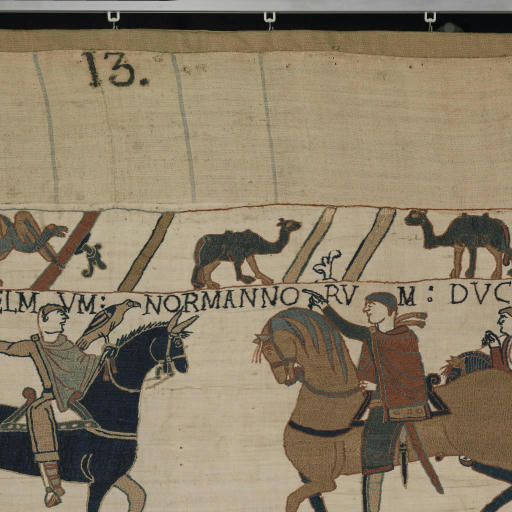 13.
ELM VM: NORMANNORVM: DVC